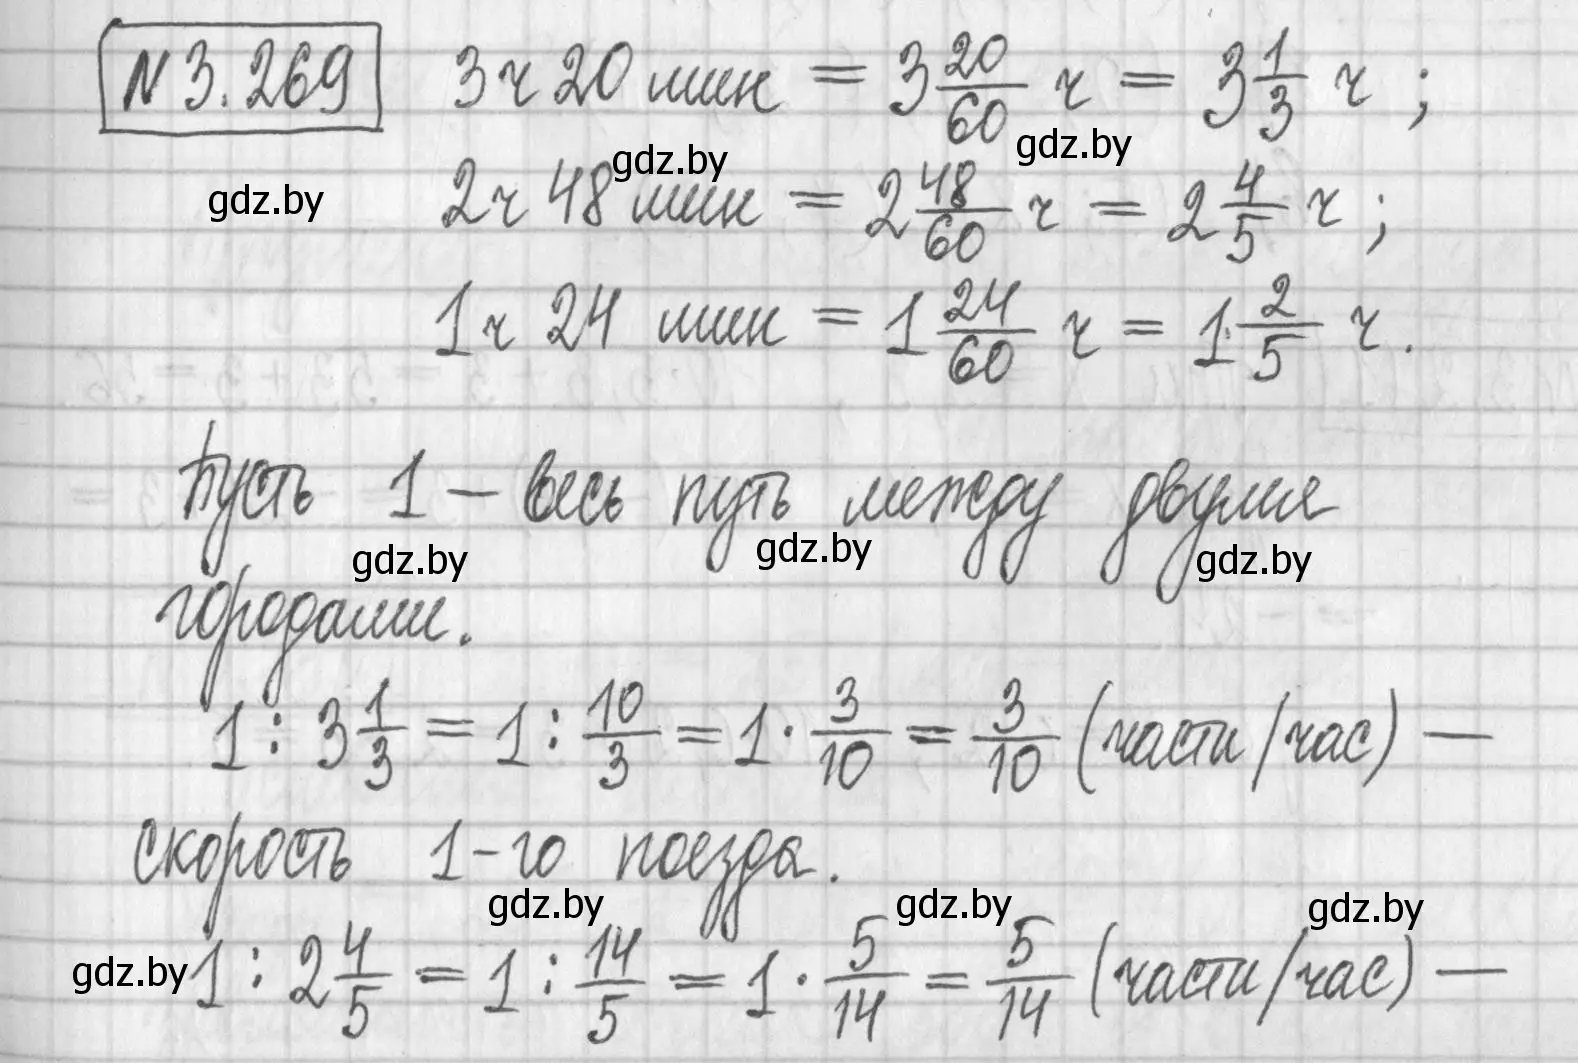 N 3.269 3 ч 20 мин = 3 20/60 ч = 3 1/3 ч ;
gdz.by gdz.by gdz.by
2 ч 48 мин = 2 48/60 ч = 2 4/5 ч ;
1 ч 24 мин = 1 24/60 ч = 1 2/5 ч .
Пусть 1 – весь путь между двумя
gdz.by gdz.by gdz.by
городами.
1 : 3 1/3 = 1 : 10/3 = 1 · 3/10 = 3/10 (части/час) —
скорость 1-го поезда.
gdz.by gdz.by gdz.by
gdz.by 1 : 2 4/5 = 1 : 14/5 = 1 · 5/14 = 5/14 (части/час) —